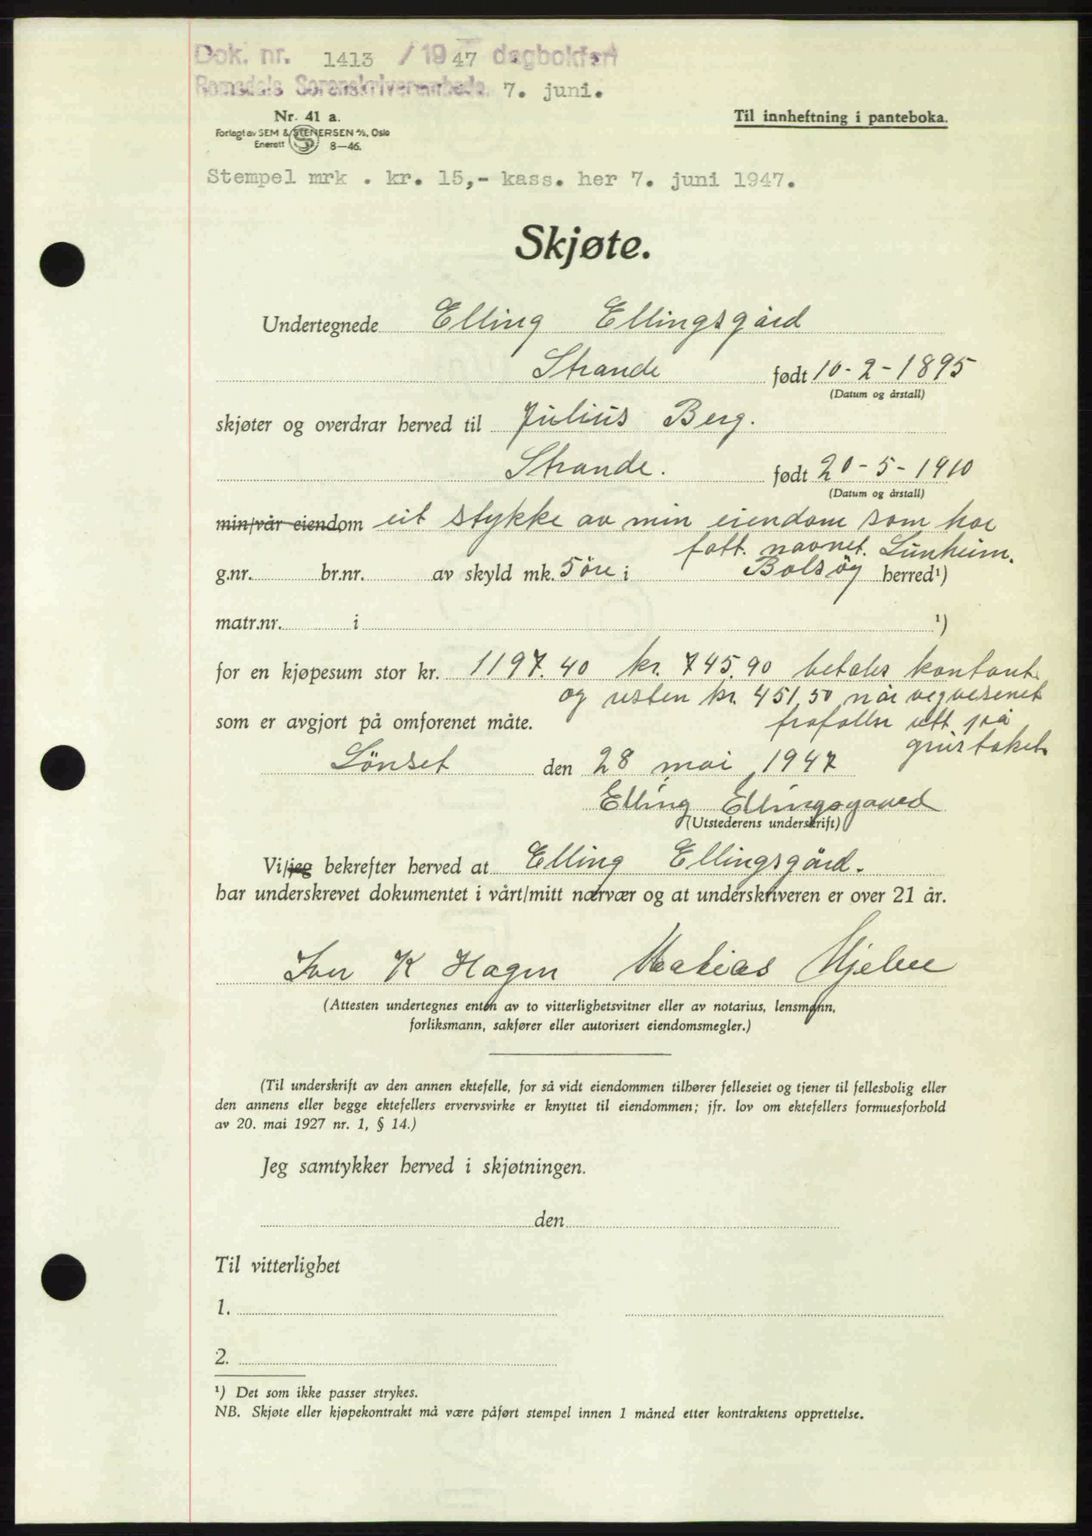 Dok. nr. 1413 / 1947 dagbokført
Romsdals Sorenskriverembede. 7. juni.
Nr. 41 a.
Forlagt av SEM & STENERSEN A/S, Oslo
Enerett 8—46.
Til innheftning i panteboka.
Stempel mrk . kr. 15,- kass. her 7. juni 1947.
Skjøte.
Undertegnede Elling Ellingsgård
Strande født 10-2-1895
(Datum og årstall)
skjøter og overdrar herved til Julius Berg.
Strande. født 20-5-1910
(Datum og årstall)
min/vår eiendom eit stykke av min eiendom som har
fått navnet Lunheim.
g.nr. br.nr. av skyld mk. 5 öre i Bolsøy herred¹)
matr.nr. i ¹)
for en kjøpesum stor kr. 1197.40 kr. 745.90 betales kontant
og resten kr. 451,50 når vegvesenet
som er avgjort på omforenet måte. frafaller rett på
grustaket.
Lönset den 28 mai 1947
Elling Ellingsgaard
(Utstederens underskrift)
Vi/jeg bekrefter herved at Elling Ellingsgård.
har underskrevet dokumentet i vårt/mitt nærvær og at underskriveren er over 21 år.
Iver K Hagen Matias Hjelle
(Attesten undertegnes enten av to vitterlighetsvitner eller av notarius, lensmann,
forliksmann, sakfører eller autorisert eiendomsmegler.)
(Til underskrift av den annen ektefelle, for så vidt eiendommen tilhører felleseiet og tjener til fellesbolig eller
den annens eller begge ektefellers ervervsvirke er knyttet til eiendommen; jfr. lov om ektefellers formuesforhold
av 20. mai 1927 nr. 1, § 14.)
Jeg samtykker herved i skjøtningen.
den
Til vitterlighet
1.
2.
¹) Det som ikke passer strykes.
NB. Skjøte eller kjøpekontrakt må være påført stempel innen 1 måned etter kontraktens opprettelse.